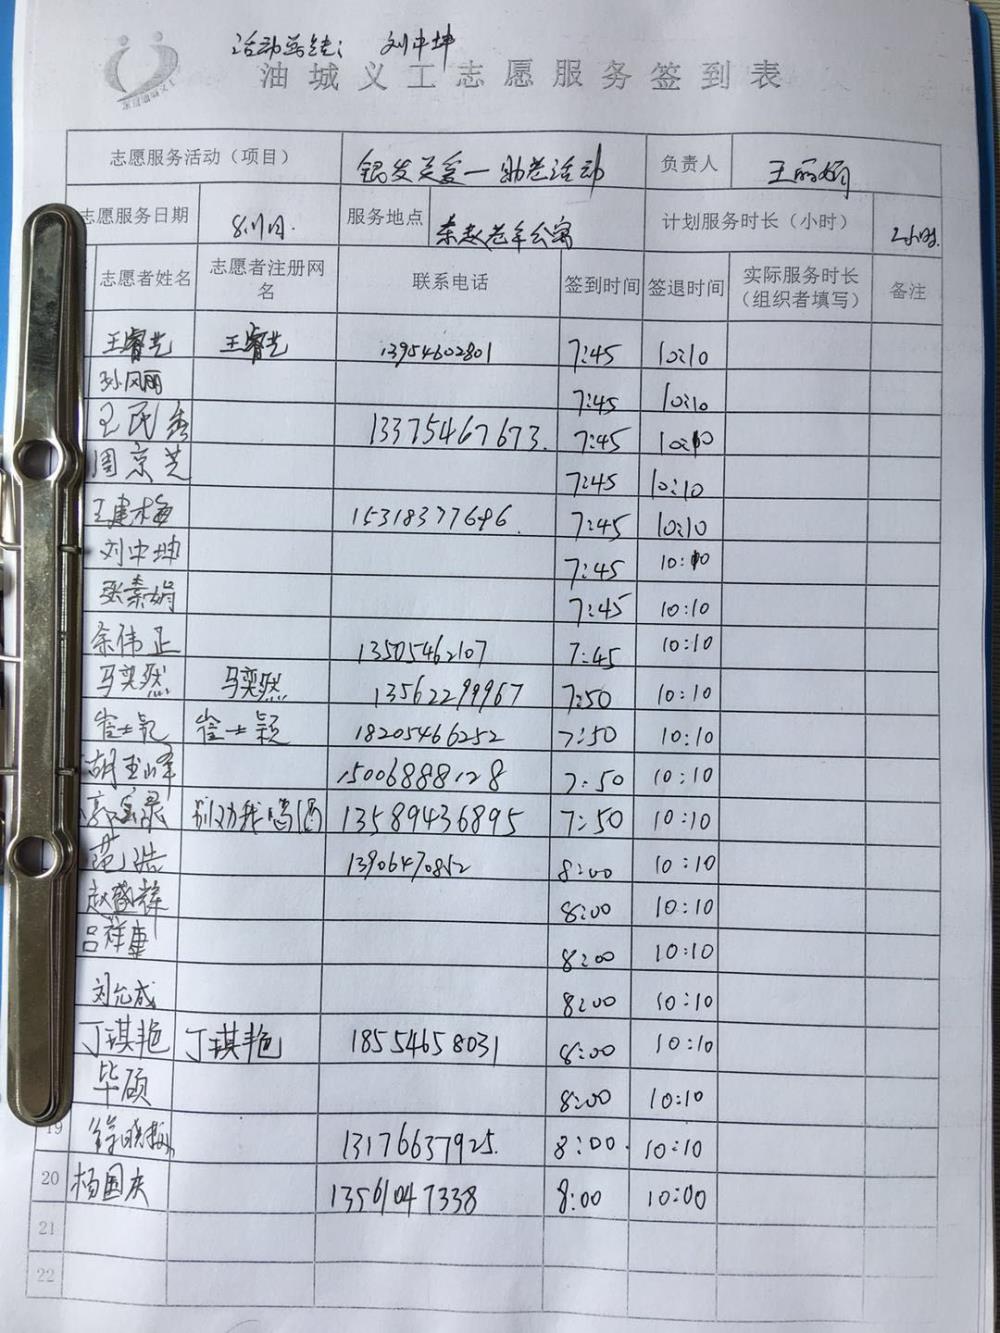 活动总结: 刘中坤
油城义工志愿服务签到表
志愿服务活动（项目） 银发关爱一助老活动 负责人 王丽娟
志愿服务日期 服务地点 秦赵老年公寓 计划服务时长（小时） 2小时.
志愿者姓名 志愿者注册网名 联系电话 签到时间 签退时间 实际服务时长（组织者填写） 备注
王睿艺 王睿艺 13954602801 7:45 10:10
孙凤丽 7:45 10:10
王民秀 13375467673. 7:45 10:10
周京芝 7:45 10:10
王建梅 15318377696. 7:45 10:10
刘中坤 7:45 10:10
张素娟 7:45 10:10
余伟正 13505462107 7:45 10:10
马奕然 马奕然 13562299967 7:50 10:10
崔士颖 崔士颖 18205466252 7:50 10:10
胡玉峰 15006888128 7:50 10:10
郭宝录 别劝我喝酒 13589436895 7:50 10:10
范浩 13906470852 8:00 10:10
赵盛辉 8:00 10:10
吕祥重 8:00 10:10
刘允成 8:00 10:10
丁琪艳 丁琪艳 18554658031 8:00 10:10
毕硕 8:00 10:10
19 徐晓梅 13176637925. 8:00. 10:10
20 杨国庆 13561047338 8:00 10:00
21
22